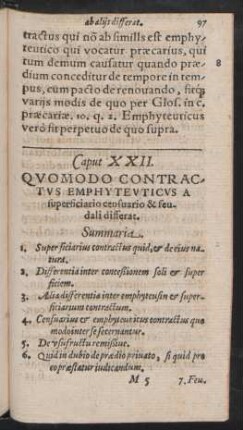 ab alijs differat. 97
tractus qui nõ ab simills est emphy-
teutico qui vocatur præcarius, qui
tum demum causatur quando præ-
dium conceditur de tempore in tem- 8
pus, cum pacto de renouando, fitq;
varijs modis de quo per Glos. in c.
præcariæ. 10. q. 2. Emphyteuticus
verò fit perpetuo de quo supra.
Caput XXII.
QVOMODO CONTRAC-
TVS EMPHYTEVTICVS A
superficiario censuario & feu-
dali differat.
Summaria.
1. Superficiarius contractus quid, & de eius na-
tura.
2. Differentia inter concesionem soli & super
ficiem.
3. Alia differentia inter emphyteusin & super-
ficiarium contractum.
4. Censuarius & emphyteuticus contractus quo
modo inter se secernantur.
5. De vsufructu remisiue.
6. Quid in dubio de prædio priuato, si quid pro
eo præstatur iudicandum.
M 5 7. Feu.